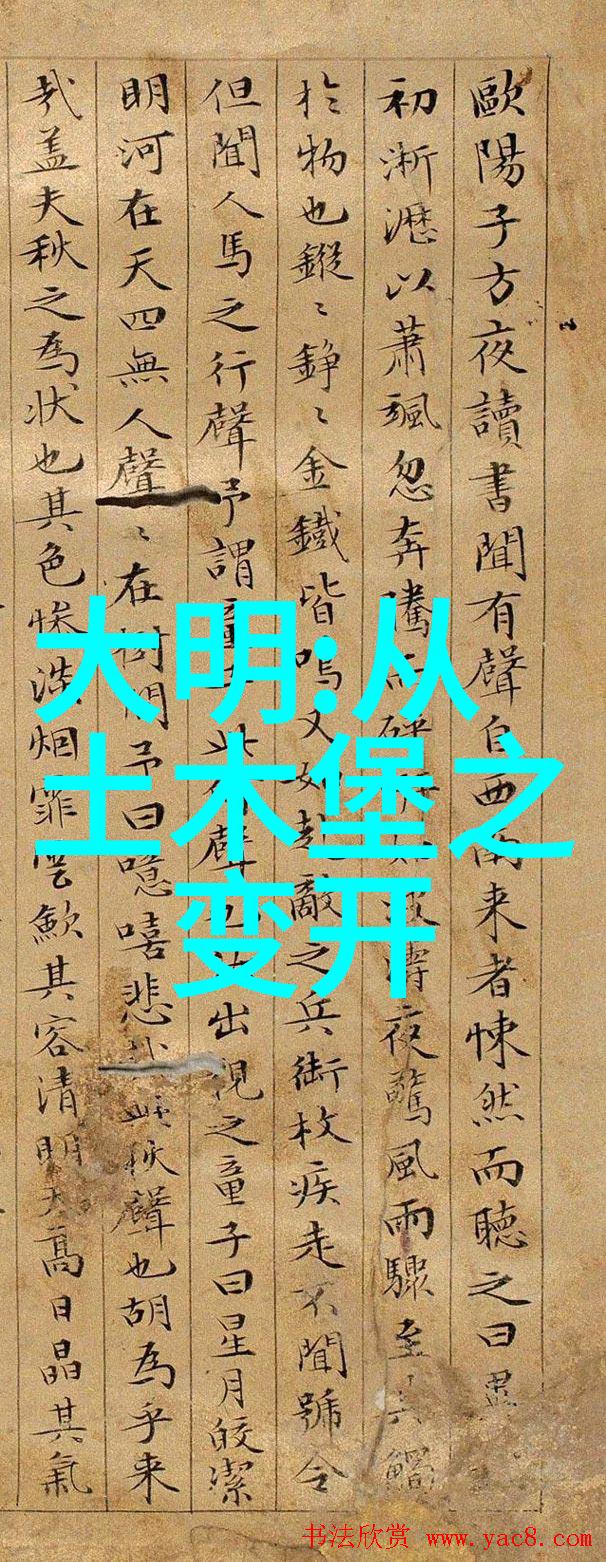 歐陽子方夜讀書聞有聲自西南来者悚然而聽之曰異
初淅瀝以蕭颯忽奔騰而砰濤夜驚風雨驟至其觸
扵物也鏦〻錚〻金鐵皆鳴又如赴敵之兵銜枚疾走不聞號令
但聞人馬之行聲予謂童此聲出視之童子曰星月皎潔
明河在天四無人聲〻在樹間予曰噫嘻悲秋聲也胡為乎来
㢤盖夫秋之為状也其色惨淡烟霏雲歛其容清明天高日晶其氣
大明:从
土木堡之
变开
书法欣赏 www.yac8.com